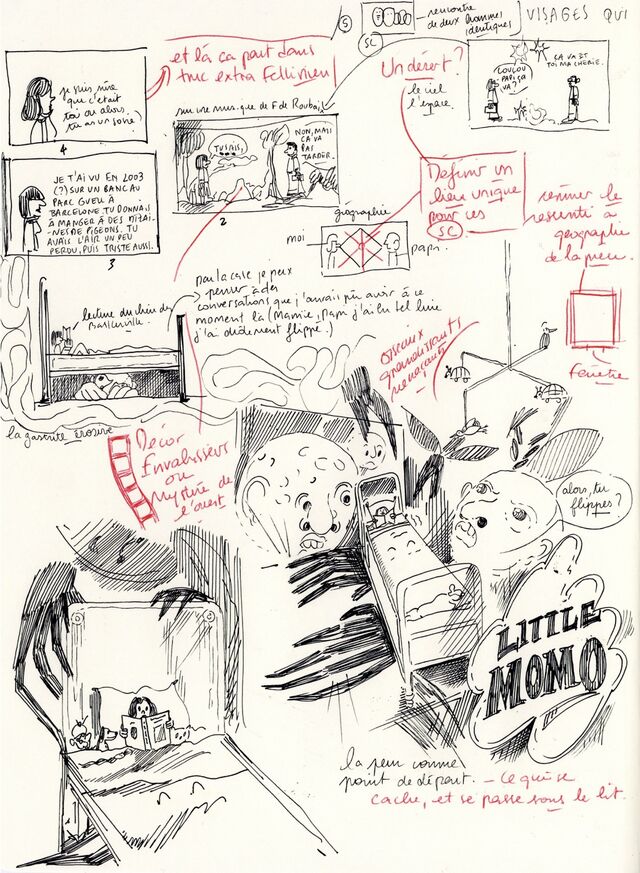 5
rencontre
de deux hommes
identiques
VISAGES QUI
SC
et là ça part dans
truc extra Fellinien
je suis sûre
que c'était
toi ou alors,
tu as un sosie!
4
Un désert?
le ciel
l'espace.
COUCOU
PAPI, ÇA
VA?
ÇA VA ET
TOI MA CHÉRIE.
sur une musique de F de Roubaix
TU SAIS,
...
NON, MAIS
ÇA VA
PAS
TARDER.
2
JE T'AI VU EN 2003
(?) SUR UN BANC AU
PARC GUELL À
BARCELONE. TU DONNAIS
À MANGER À DES DIZAI-
NES DE PIGEONS. TU
AVAIS L'AIR UN PEU
PERDU, PUIS TRISTE AUSSI.
3
Définir un
lieu unique
pour ces
SC
géographie
moi
papi
le
ressenti à
géographie
de la peur.
fenêtre
lecture du chien des
Baskerville.
par la case je peux
penser à des
conversations que j'aurais pu avoir à ce
moment là (Mamie, Papi j'ai lu tel livre
j'ai drôlement flippé.)
oiseaux
grandissants
menaçants
!
la gasenite érosive
Décor
Envahisseurs
ou
Mystère de
l'ouest
alors, tu
flippes?
LITTLE
MOMO
la peur comme
point de départ. – Ce qui se
cache, et se passe sous le lit.